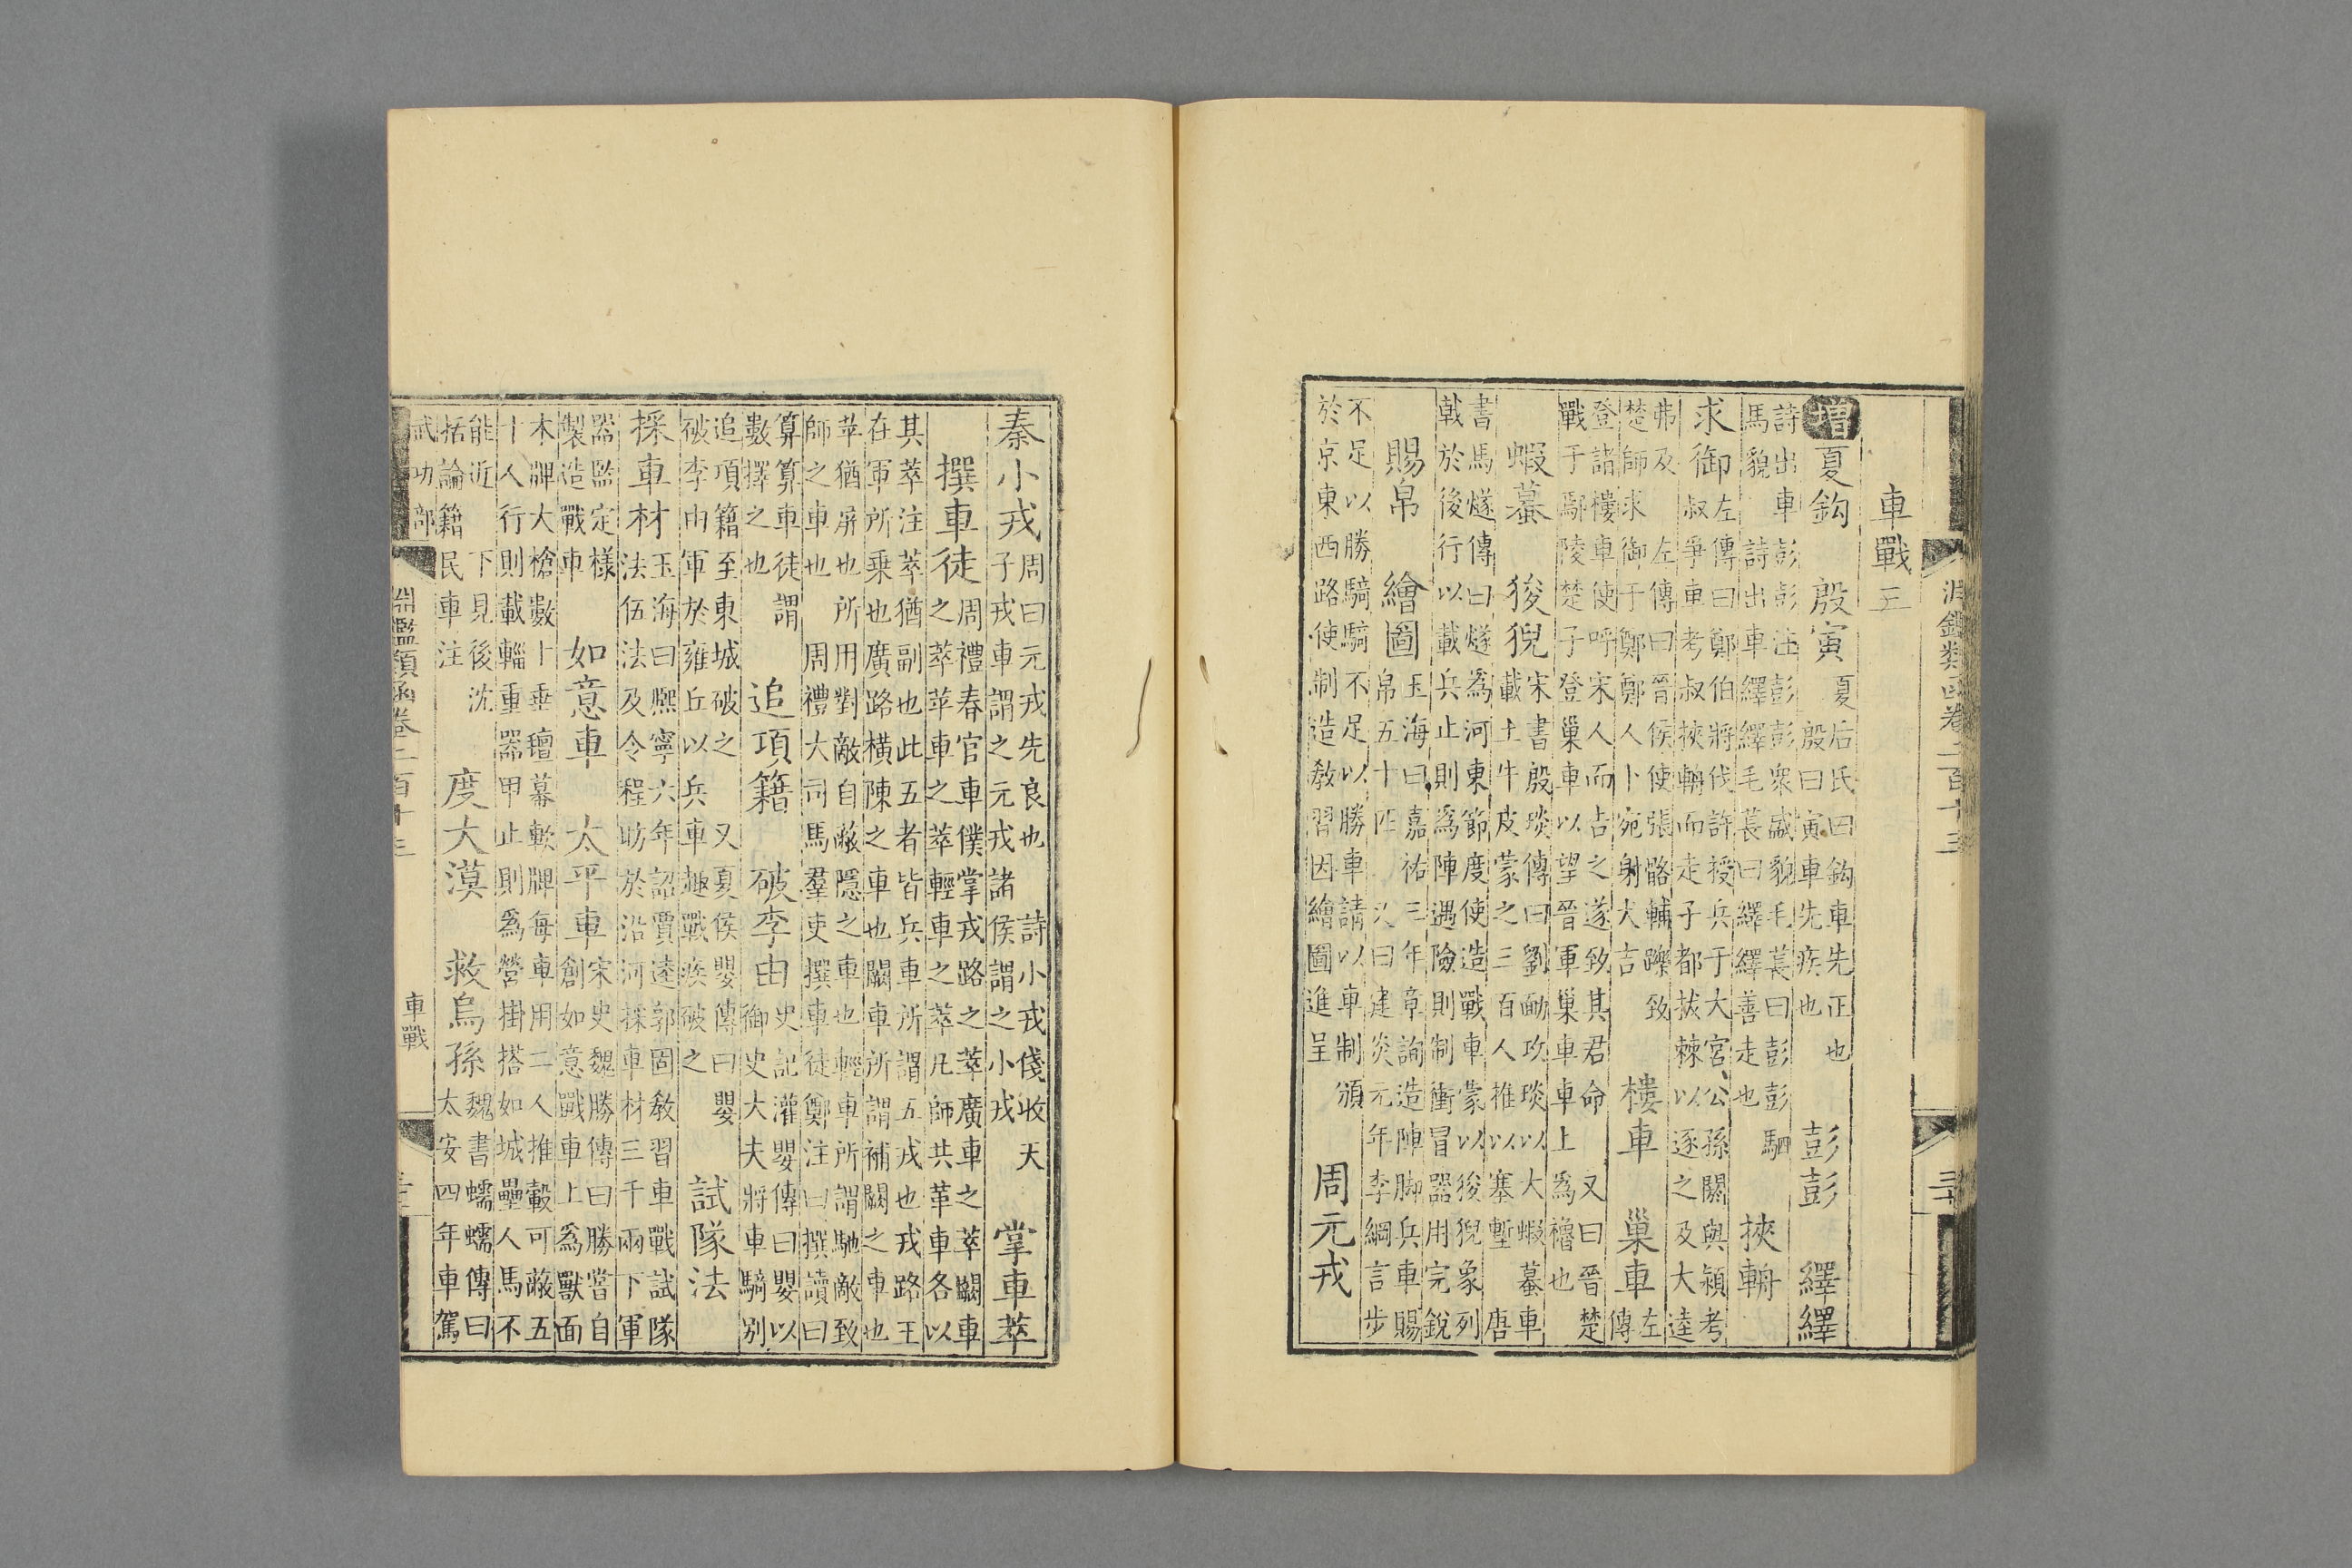 淵鑑類函卷二百十三
車戰三
增夏鈎 殷寅 夏后氏曰鈎車先正也
殷曰寅車先疾也 彭彭 繹繹
詩出車彭彭注彭彭衆盛貌毛萇曰彭彭駟
馬貌 詩出車繹繹毛萇曰繹繹善走也 挾輈
求御 左傳曰鄭伯將伐許授兵于大宮公孫閼與潁考
叔爭車考叔挾輈而走子都拔棘以逐之及大逵
弗及 左傳曰晉侯使張骼輔躒致
楚師求御于鄭鄭人卜宛射犬吉 樓車 巢車 左傳
登諸樓車使呼宋人而告之遂致其君命 又曰晉楚
戰于鄢陵楚子登巢車以望晉軍巢車車上爲櫓也
蝦蟇 狻猊 宋書殷琰傳曰劉勔攻琰以大蝦蟇車
載土牛皮蒙之三百人推以塞塹 唐
書馬燧傳曰燧爲河東節度使造戰車蒙以狻猊象列
戟於後行以載兵止則爲陣遇險則制衝冒器用完銳
賜帛 繪圖 玉海曰嘉祐三年章詢造陣脚兵車賜
帛五十匹 又曰建炎元年李綱言步
不足以勝騎騎不足以勝車請以車制頒
於京東西路使制造教習因繪圖進呈 周元戎
秦小戎 周曰元戎先良也 詩小戎俴收天
子戎車謂之元戎諸侯謂之小戎 掌車萃
撰車徒 周禮春官車僕掌戎路之萃廣車之萃闕車
之萃苹車之萃輕車之萃凡師共革車各以
其萃注萃猶副也此五者皆兵車所謂五戎也戎路王
在軍所乘也廣路橫陳之車也闕車所謂補闕之車也
苹猶屏也所用對敵自蔽隱之車也輕車所謂馳敵致
師之車也 周禮大司馬羣吏撰車徒鄭注曰撰讀曰
算算車徒謂
數擇之也 追項籍 破李由 史記灌嬰傳曰嬰以
御史大夫將車騎別
追項籍至東城破之 又夏侯嬰傳曰嬰
破李由軍於雍丘以兵車趣戰疾破之 試隊法
採車材 玉海曰熙寧六年詔賈逵郭固教習車戰試隊
法伍法及令程昉於沿河採車材三千兩下軍
器監定樣
製造戰車 如意車 太平車 宋史魏勝傳曰勝嘗自
創如意戰車上爲獸面
木牌大槍數十垂氊幕軟牌每車用二人推轂可蔽五
十人行則載輜重器甲止則爲營掛搭如城壘人馬不
能近 下見後沈
括論籍民車注 度大漠 救烏孫 魏書蠕蠕傳曰
太安四年車駕
武功部 淵鑑類函卷二百十三 車戰